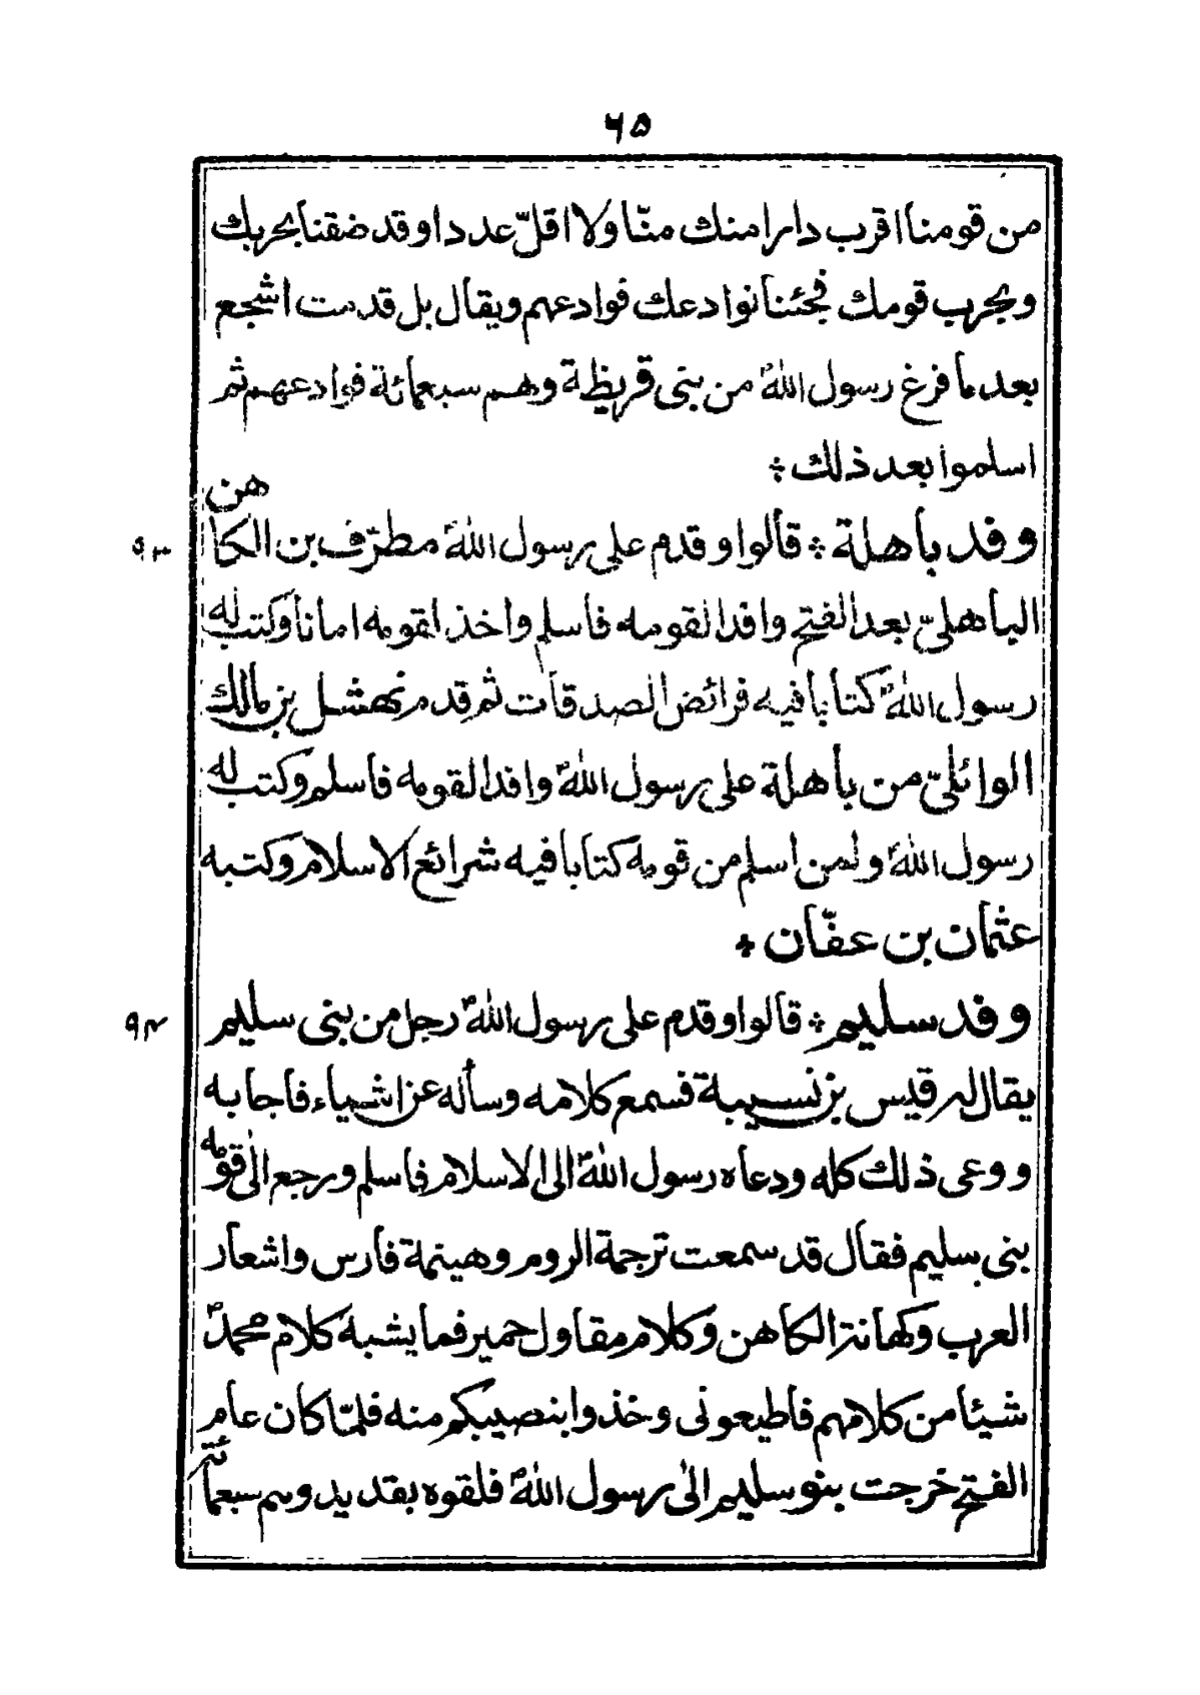 ٦٥
من قومنا اقرب دارا منك منّا ولا اقلّ عددا وقد ضقنا بحربك
وبحرب قومك فجئنا نوادعك فوادعهم ويقال بل قدمت اشجع
بعد ما فرغ رسول اللهؐ من بنى قريظة وهم سبعمائة فوادعهم ثم
اسلموا بعد ذلك ÷
٩٣ وفد باهلة ÷ قالوا وقدم على رسول اللهؐ مطرّف بن الكاهن
الباهلىّ بعد الفتح وافدا لقومه فاسلم واخذ لقومه امانا وكتب له
رسول اللهؐ كتابا فيه فرائض الصدقات ثم قدم نهشل بن مالك
الوائلىّ من باهلة على رسول اللهؐ وافدا لقومه فاسلم وكتب له
رسول اللهؐ ولمن اسلم من قومه كتابا فيه شرائع الاسلام وكتبه
عثمان بن عفّان ÷
٩٤ وفد سليم ÷ قالوا وقدم على رسول اللهؐ رجل من بنى سليم
يقال له قيس بن نسيبة فسمع كلامه وسأله عن اشياء فاجابه
ووعى ذلك كله ودعاه رسول اللهؐ الى الاسلام فاسلم ورجع الى قومه
بنى سليم فقال قد سمعت ترجمة الروم وهينمة فارس واشعار
العرب وكهانة الكاهن وكلام مقاول حمير فما يشبه كلام محمدؐ
شيئا من كلامهم فاطيعونى وخذوا بنصيبكم منه فلمّا كان عام
الفتح خرجت بنو سليم الى رسول اللهؐ فلقوه بقديد وهم سبعمائة